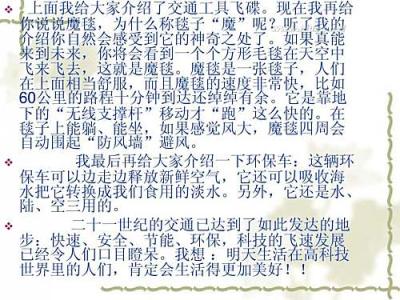 上面我给大家介绍了交通工具飞碟。现在我再给
你说说魔毯，为什么称毯子“魔”呢？听了我的
介绍你自然会感受到它的神奇之处了。如果真能
来到未来，你将会看到一个个方形毛毯在天空中
飞来飞去，这就是魔毯。魔毯是一张毯子，人们
在上面相当舒服，而且魔毯的速度非常快，比如
60公里的路程十分钟到达还绰绰有余。它是靠地
下的“无线支撑杆”移动才“跑”这么快的。在
毯子上能躺、能坐，如果感觉风大，魔毯四周会
自动围起“防风墙”避风。
我最后再给大家介绍一下环保车：这辆环
保车可以边走边释放新鲜空气，它还可以吸收海
水把它转换成我们食用的淡水。另外，它还是水、
陆、空三用的。
二十一世纪的交通已达到了如此发达的地
步：快速、安全、节能、环保，科技的飞速发展
已经令人们口目瞪呆。我想：明天生活在高科技
世界里的人们，肯定会生活得更加美好！！